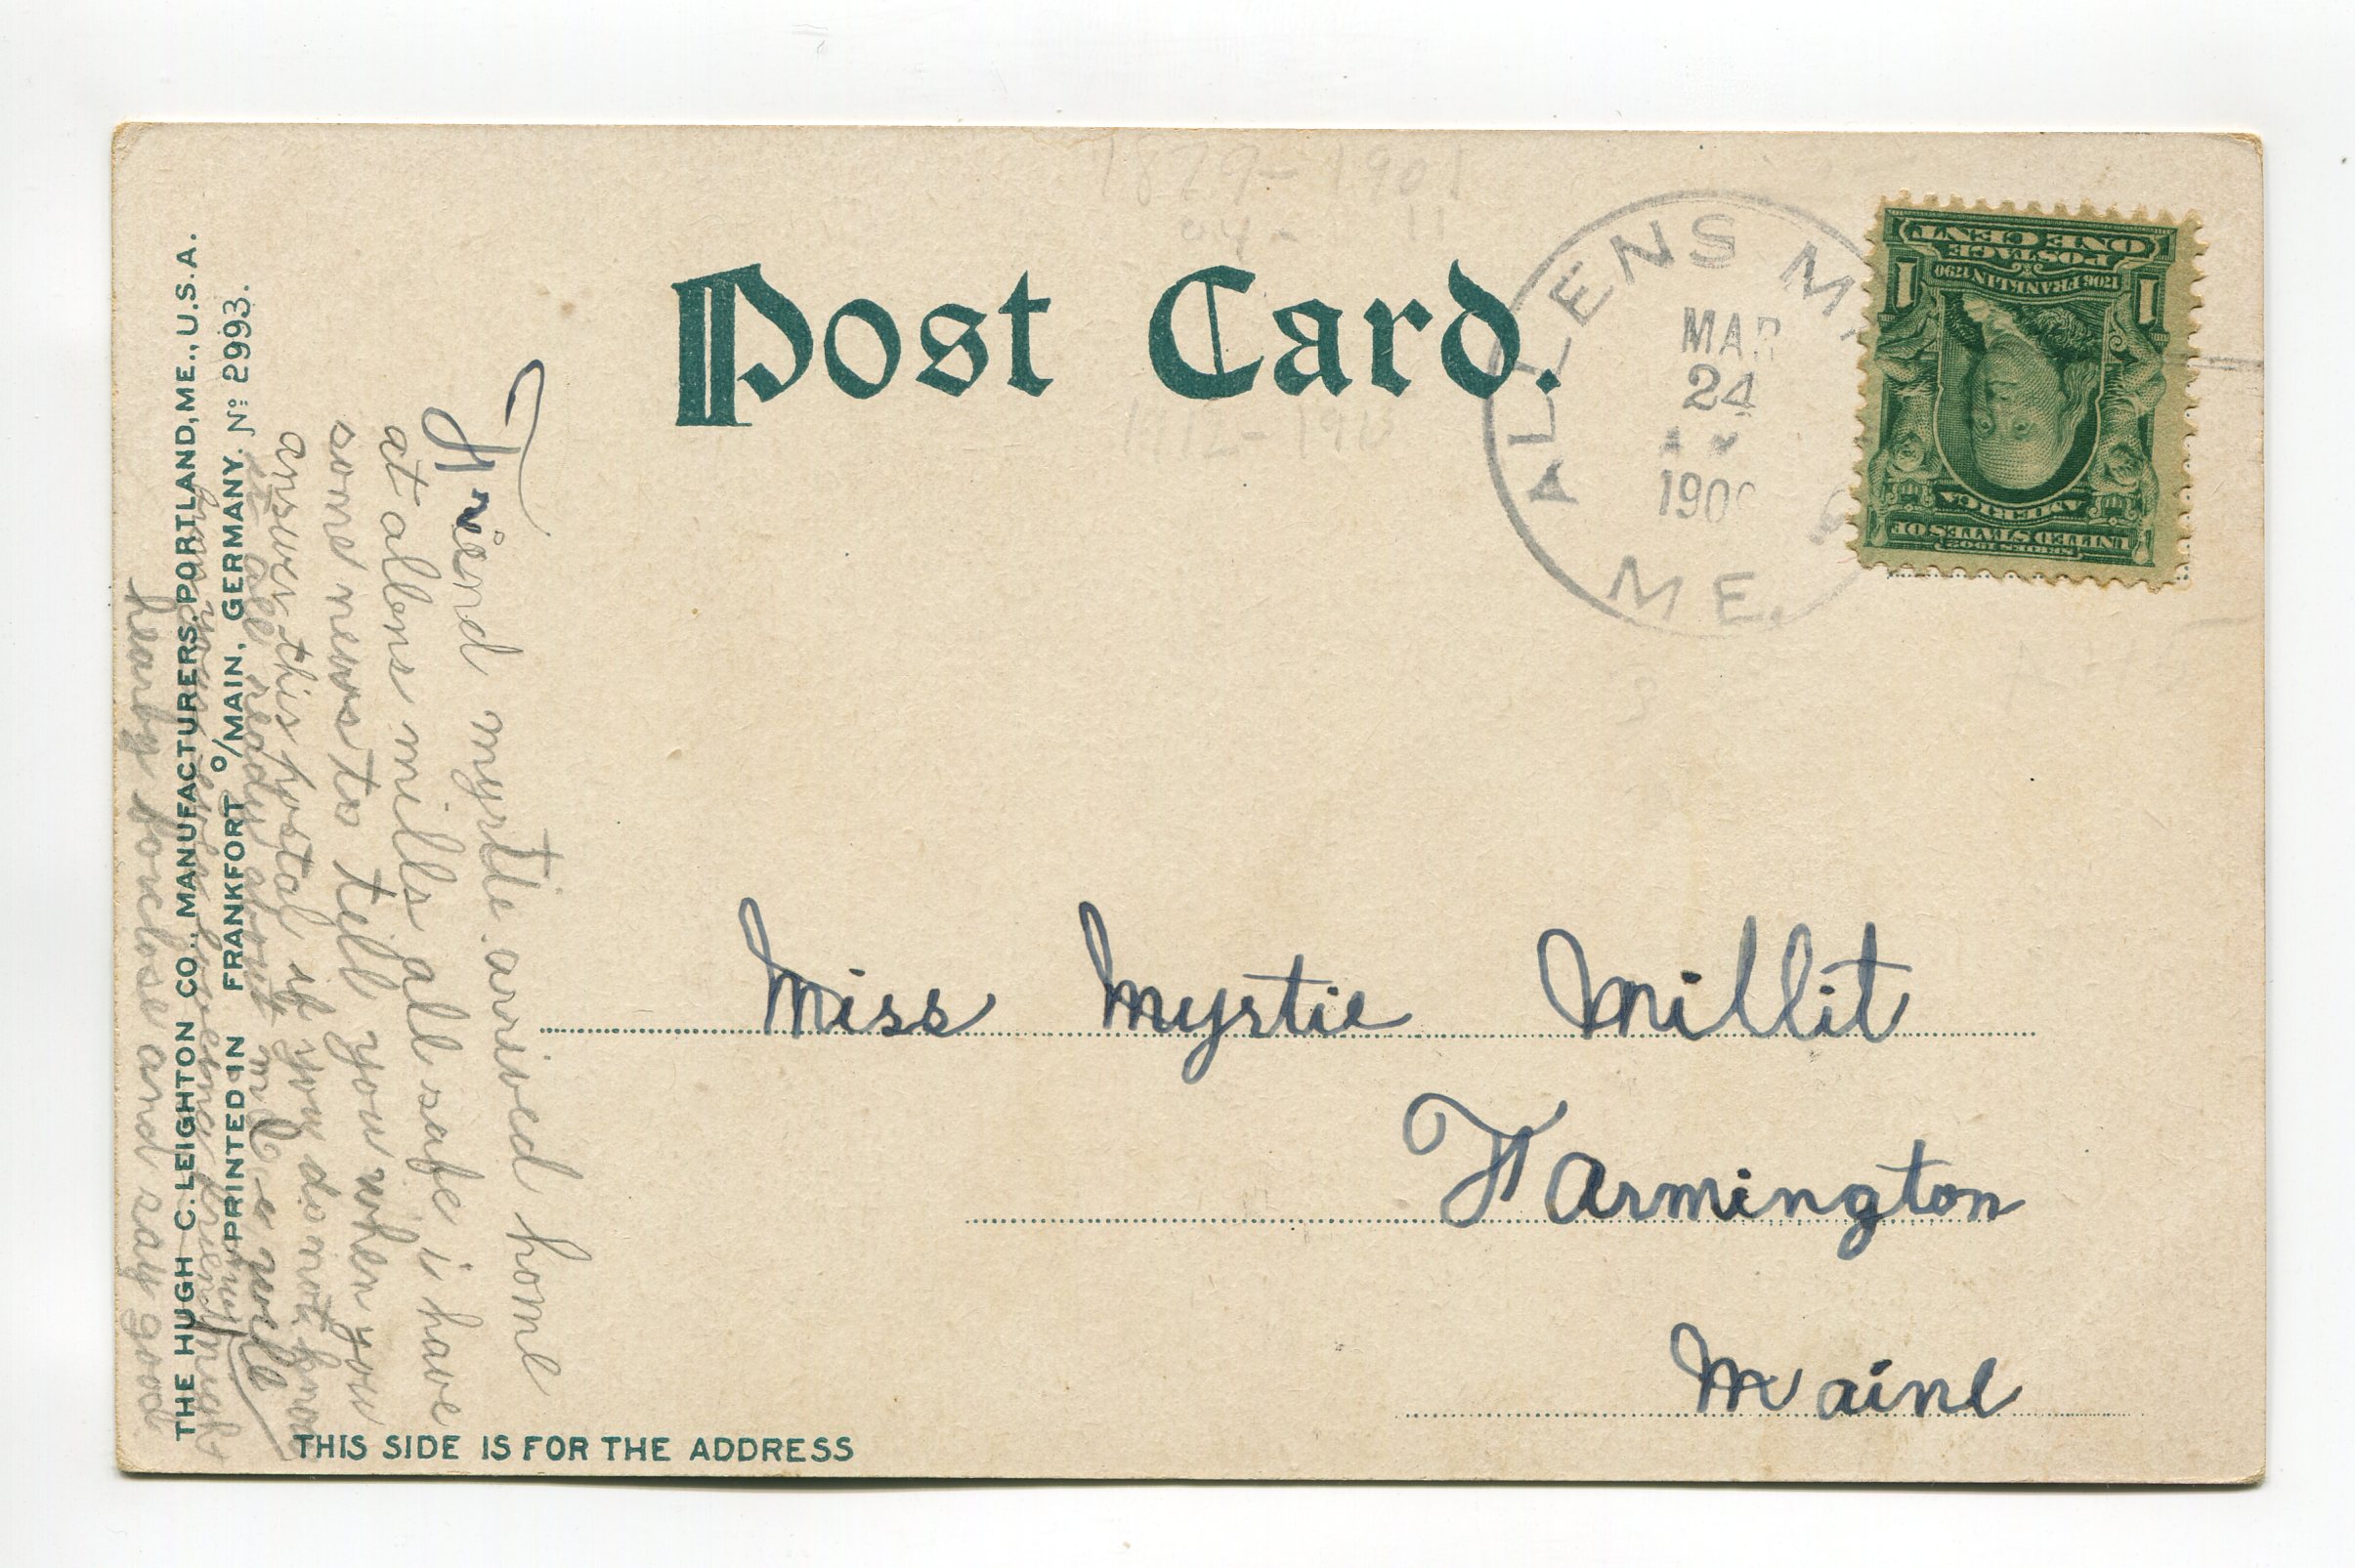 Post Card.
ALLENS M
MAR
24
190
ME.
ONE CENT
POSTAGE
1706 FRANKLIN 1790
1 1
AMERICA
UNITED STATES OF
SERIES 1902
1879-1901
04- 11
Miss Myrtie Millit
Farmington
Maine
THIS SIDE IS FOR THE ADDRESS
THE HUGH C. LEIGHTON CO., MANUFACTURERS, PORTLAND, ME., U.S.A.
PRINTED IN FRANKFORT o/MAIN, GERMANY. No 2993.
Friend myrtie arrived home
at allens mills all safe i have
some news to tell you when you
answer this postal if you do not know
it all ready about will
hearby conclose and say good
from your loveing friend